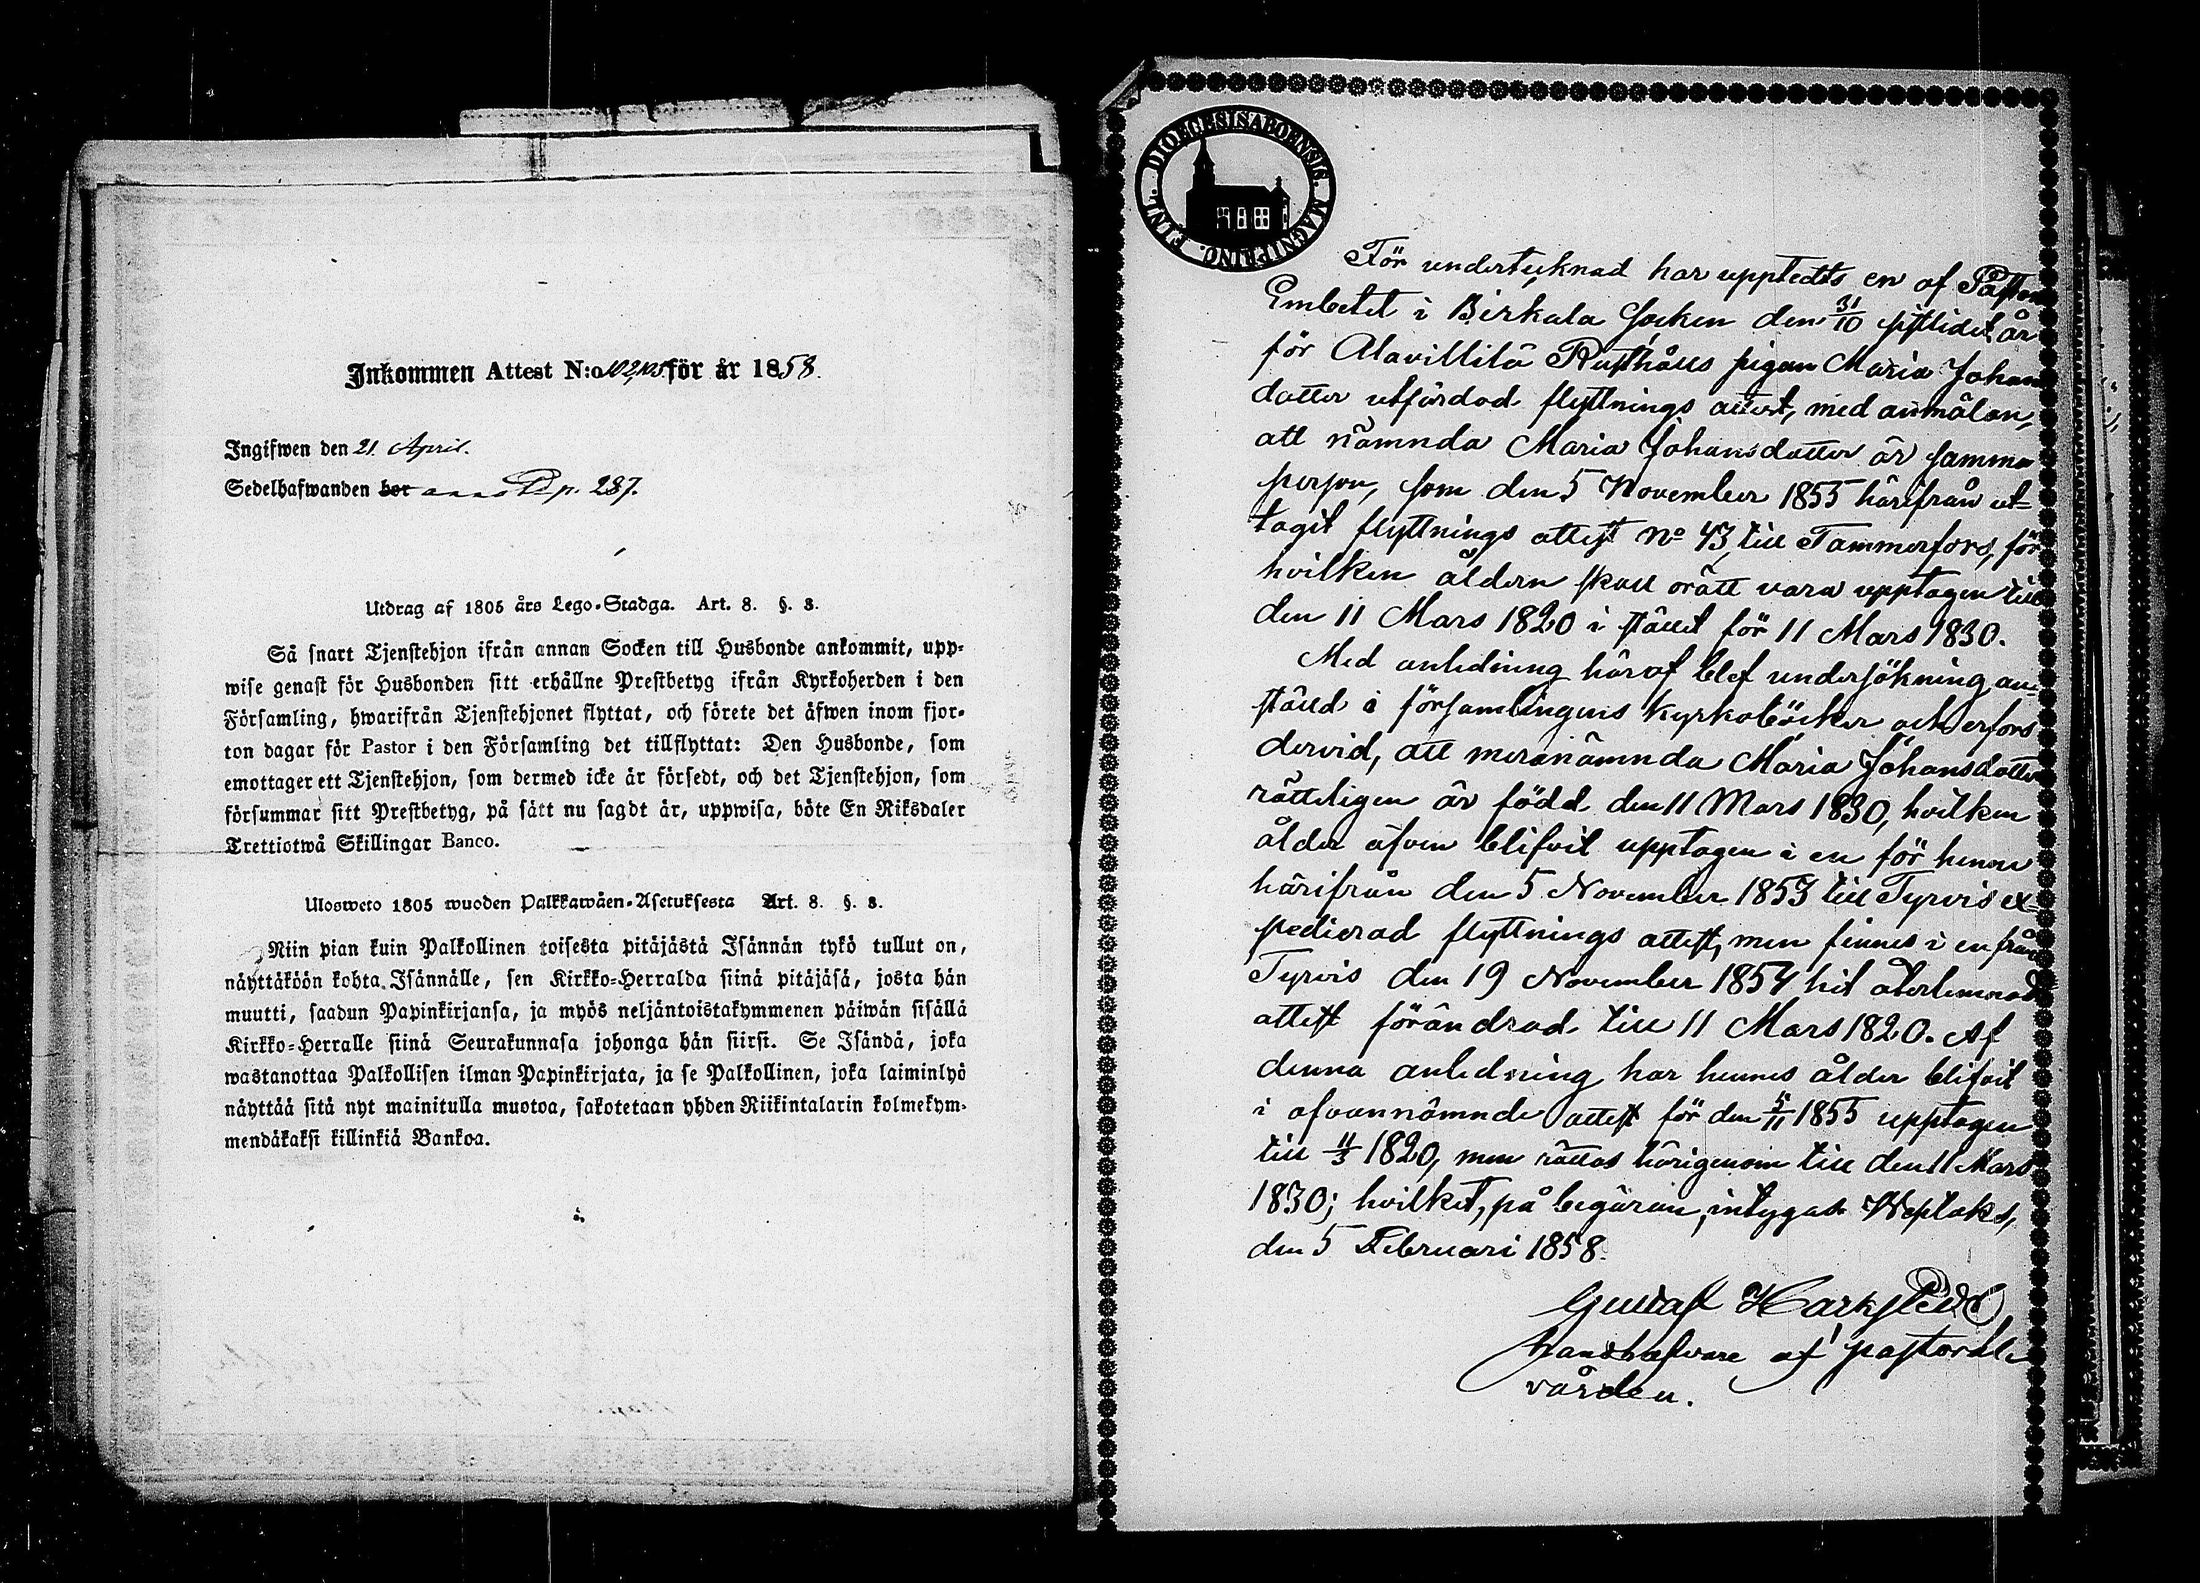 Inkommen Attest N:o 102,105 för år 1858.
Ingifwen den 21. April.
Sedelhafwanden bor p. 287.
Utdrag af 1805 års Lego-Stadga. Art. 8. §. 3.
Så snart Tjenstehjon ifrån annan Socken till Husbonde ankommit, upp-
wise genast för Husbonden sitt erhållne Prestbetyg ifrån Kyrkoherden i den
Församling, hwarifrån Tjenstehjonet flyttat, och förete det äfwen inom fjor-
ton dagar för Pastor i den Församling det tillflyttat: Den Husbonde, som
emottager ett Tjenstehjon, som dermed icke är försedt, och det Tjenstehjon, som
försummar sitt Prestbetyg, på sätt nu sagdt är, uppwisa, böte En Riksdaler
Trettiotwå Skillingar Banco.
Ulosweto 1805 wuoden Palkkawäen-Asetuksesta Art. 8. §. 3.
Niin pian kuin Palkollinen toisesta pitäjästä Isännän tykö tullut on,
näyttäköön kohta Isännälle, sen Kirkko-Herralda siinä pitäjäsä, josta hän
muutti, saadun Papinkirjansa, ja myös neljäntoistakymmenen päiwän sisällä
Kirkko-Herralle siinä Seurakunnasa johonga hän siirsi. Se Isändä, joka
wastanottaa Palkollisen ilman Papinkirjata, ja se Palkollinen, joka laiminlyö
näyttää sitä nyt mainitulla muotoa, sakotetaan yhden Riikintalarin kolmekym-
mendäkaksi killinkiä Bankoa.
DIOECESIS ABOENSIS. MAGNI PRINC. FINL.
För undertecknad har uppteetts en af Pastors
Embetet i Birkala Socken den 31/10 sistlidet år
för Alavillilä Rusthålls pigan Maria Johans
dotter utfärdad flyttnings attest, med anmälan,
att nämnda Maria Johansdotter är samma
person, som den 5 November 1855 härifrån ut-
tagit flyttnings attest No 43 till Tammerfors, för
hvilken åldern skall orätt vara upptagen till
den 11 Mars 1820 i stället för 11 Mars 1830.
Med anledning häraf blef undersökning an-
stäld i församlingens Kyrkoböcker och erfors
dervid, att meranämnda Maria Johansdotter
rätteligen är född den 11 Mars 1830, hvilken
ålder äfven blifvit upptagen i en för henne
härifrån den 5 November 1853 till Tyrvis ex-
pedierad flyttnings attest, men finnes i en från
Tyrvis den 19 November 1854 hit återlemnad
attest förändrad till 11 Mars 1820. Af
denna anledning har hennes ålder blifvit
i ofvannämnde attest för den 5/11 1855 upptagen
till 11/3 1820, men rättas härigenom till den 11 Mars
1830; hvilket, på begäran, intygas. Wesilaks,
den 5 Februari 1858.
Gustaf
handhafvare af pastoral
vården.